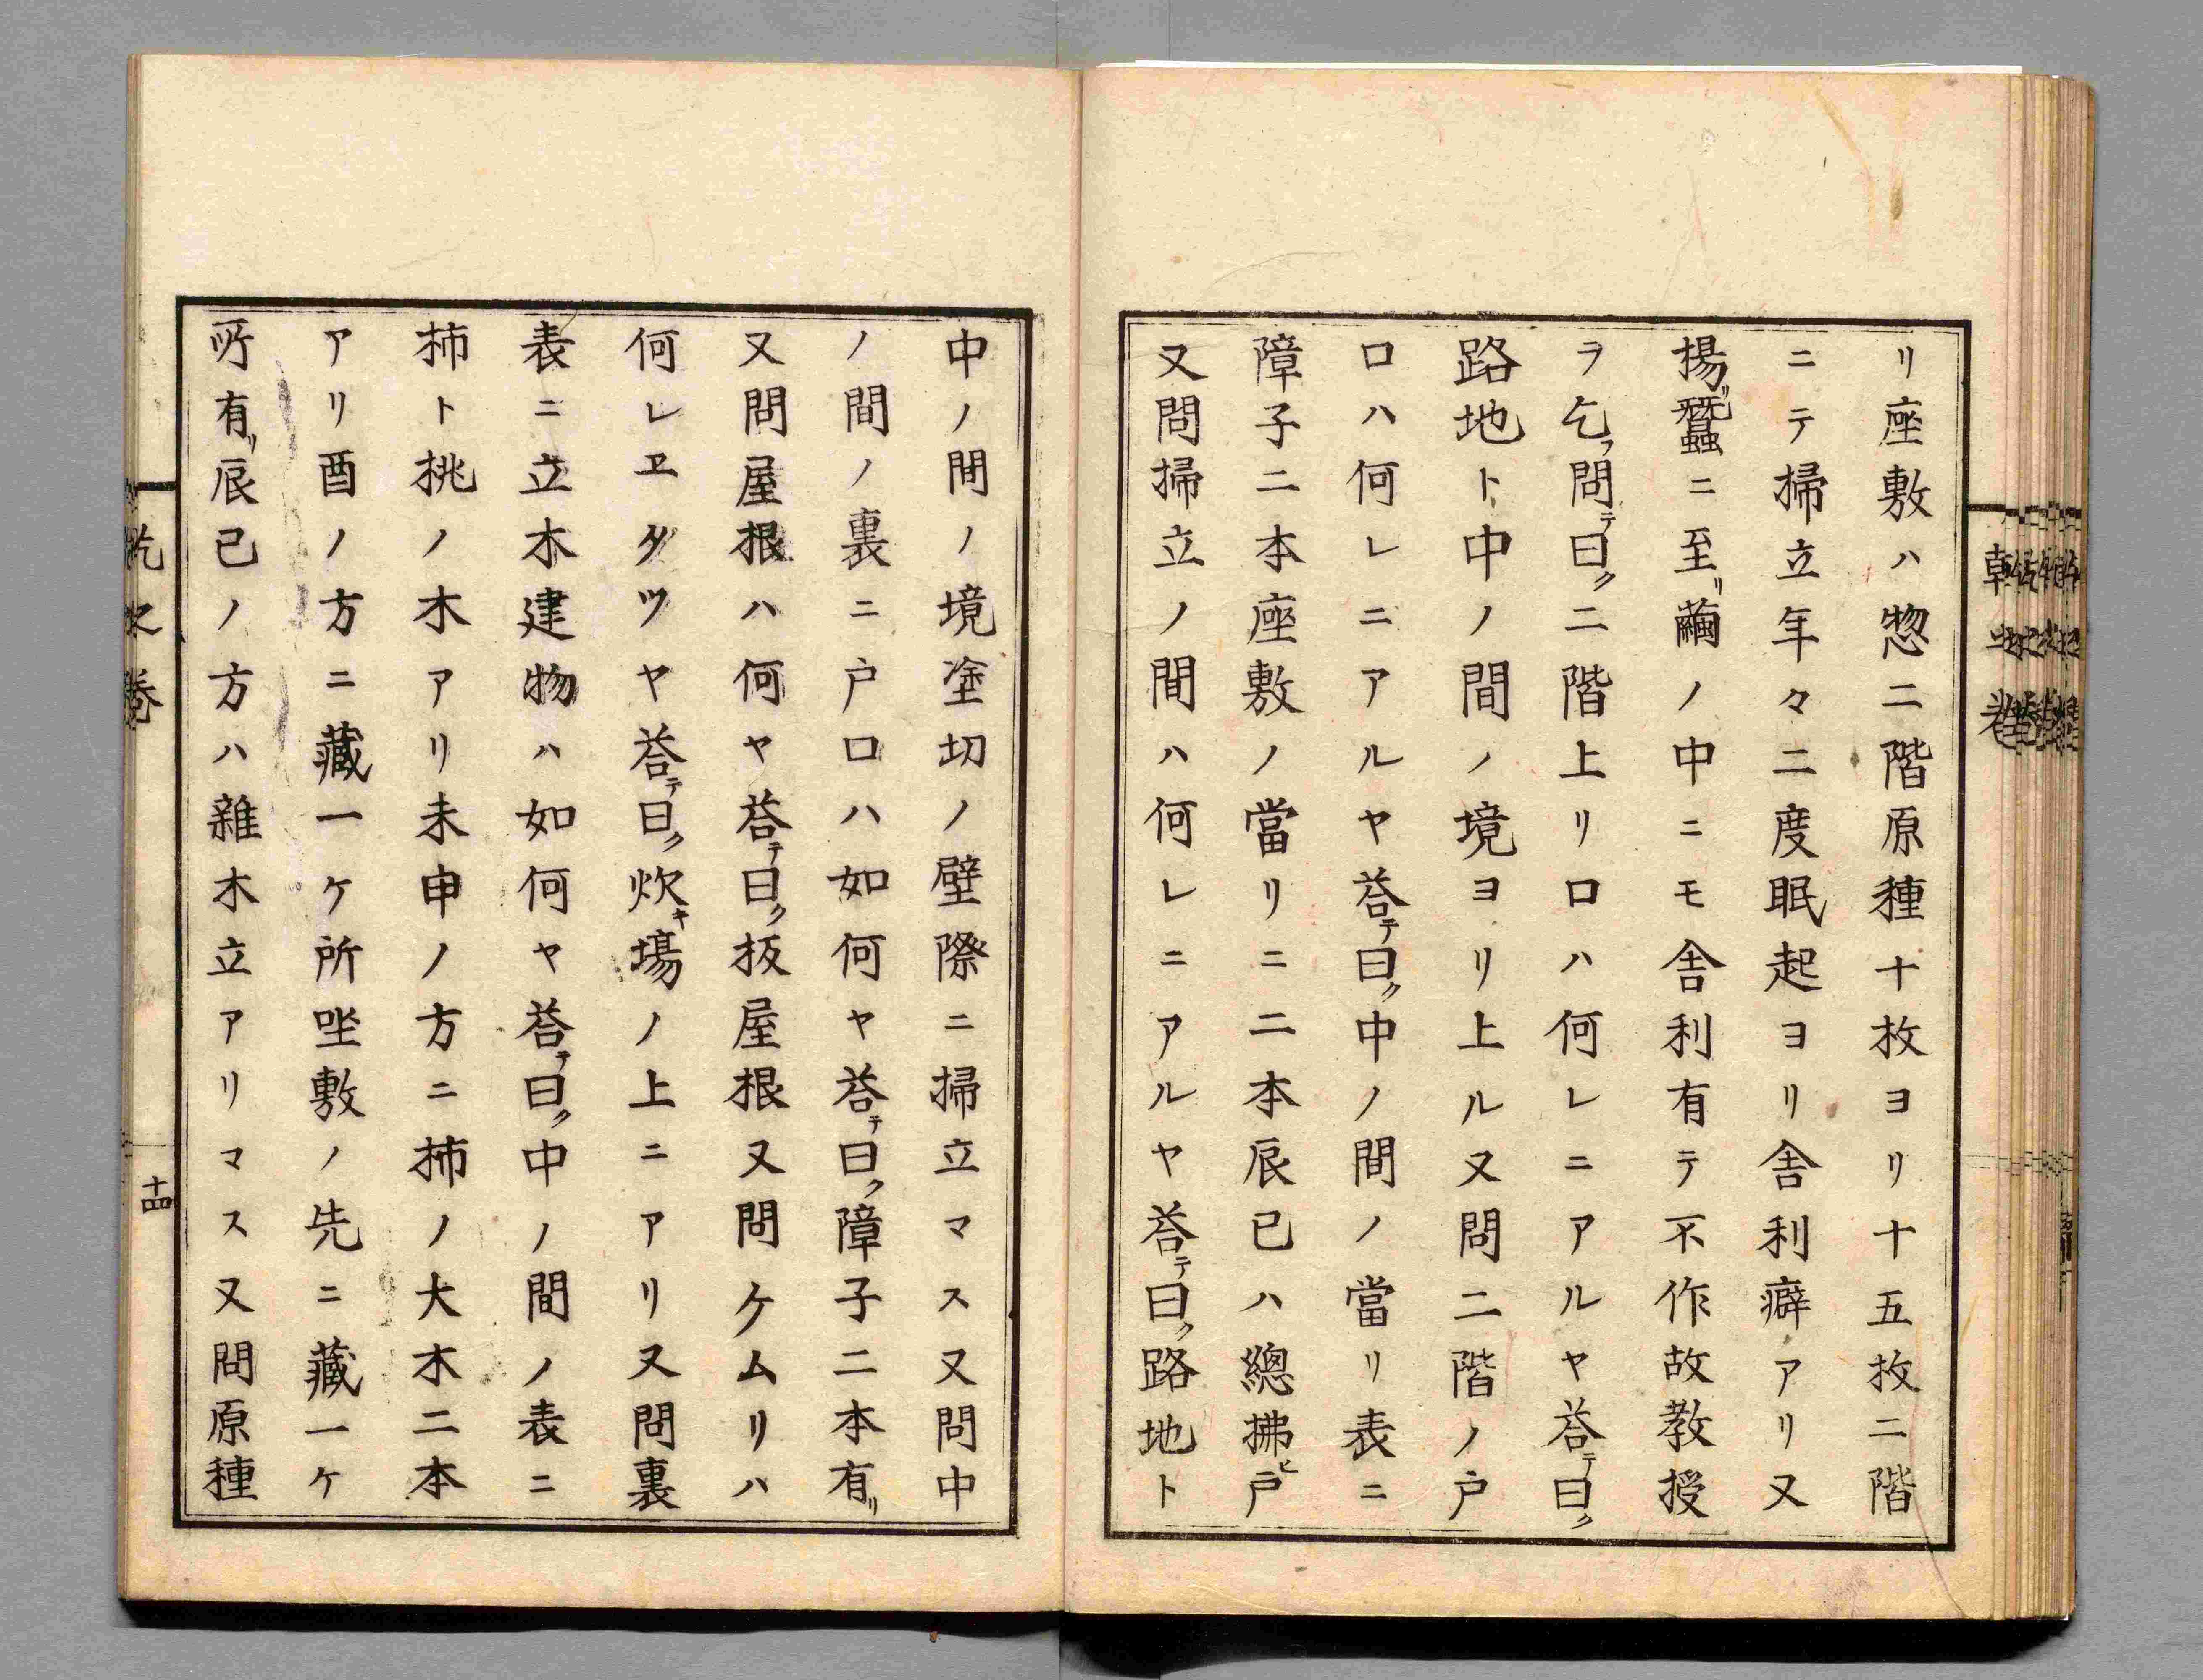 リ座敷ハ惣二階原種十枚ヨリ十五枚二階
ニテ掃立年々二度眠起ヨリ舎利癖アリ又
揚リ蠶ニ至リ繭ノ中ニモ舎利有テ不作故教授
ヲ乞フ問テ曰ク二階上リ口ハ何レニアルヤ荅テ曰ク
路地ト中ノ間ノ境ヨリ上ル又問二階ノ戸
口ハ何レニアルヤ荅テ曰ク中ノ間ノ當リ表ニ
障子二本座敷ノ當リニ二本辰巳ハ總拂ヒ戸
又問掃立ノ間ハ何レニアルヤ荅テ曰ク路地ト
中ノ間ノ境塗切ノ壁際ニ掃立マス又問中
ノ間ノ裏ニ戸口ハ如何ヤ荅テ曰ク障子二本有リ
又問屋根ハ何ヤ荅テ曰ク扳屋根又問ケムリハ
何レヱタツヤ荅テ曰ク炊キ場ノ上ニアリ又問裏
表ニ立木建物ハ如何ヤ荅テ曰ク中ノ間ノ表ニ
柿ト桃ノ木アリ未申ノ方ニ柿ノ大木二本
アリ酉ノ方ニ藏一ケ所坐敷ノ先ニ藏一ケ
所有リ辰巳ノ方ハ雜木立アリマス又問原種
十四